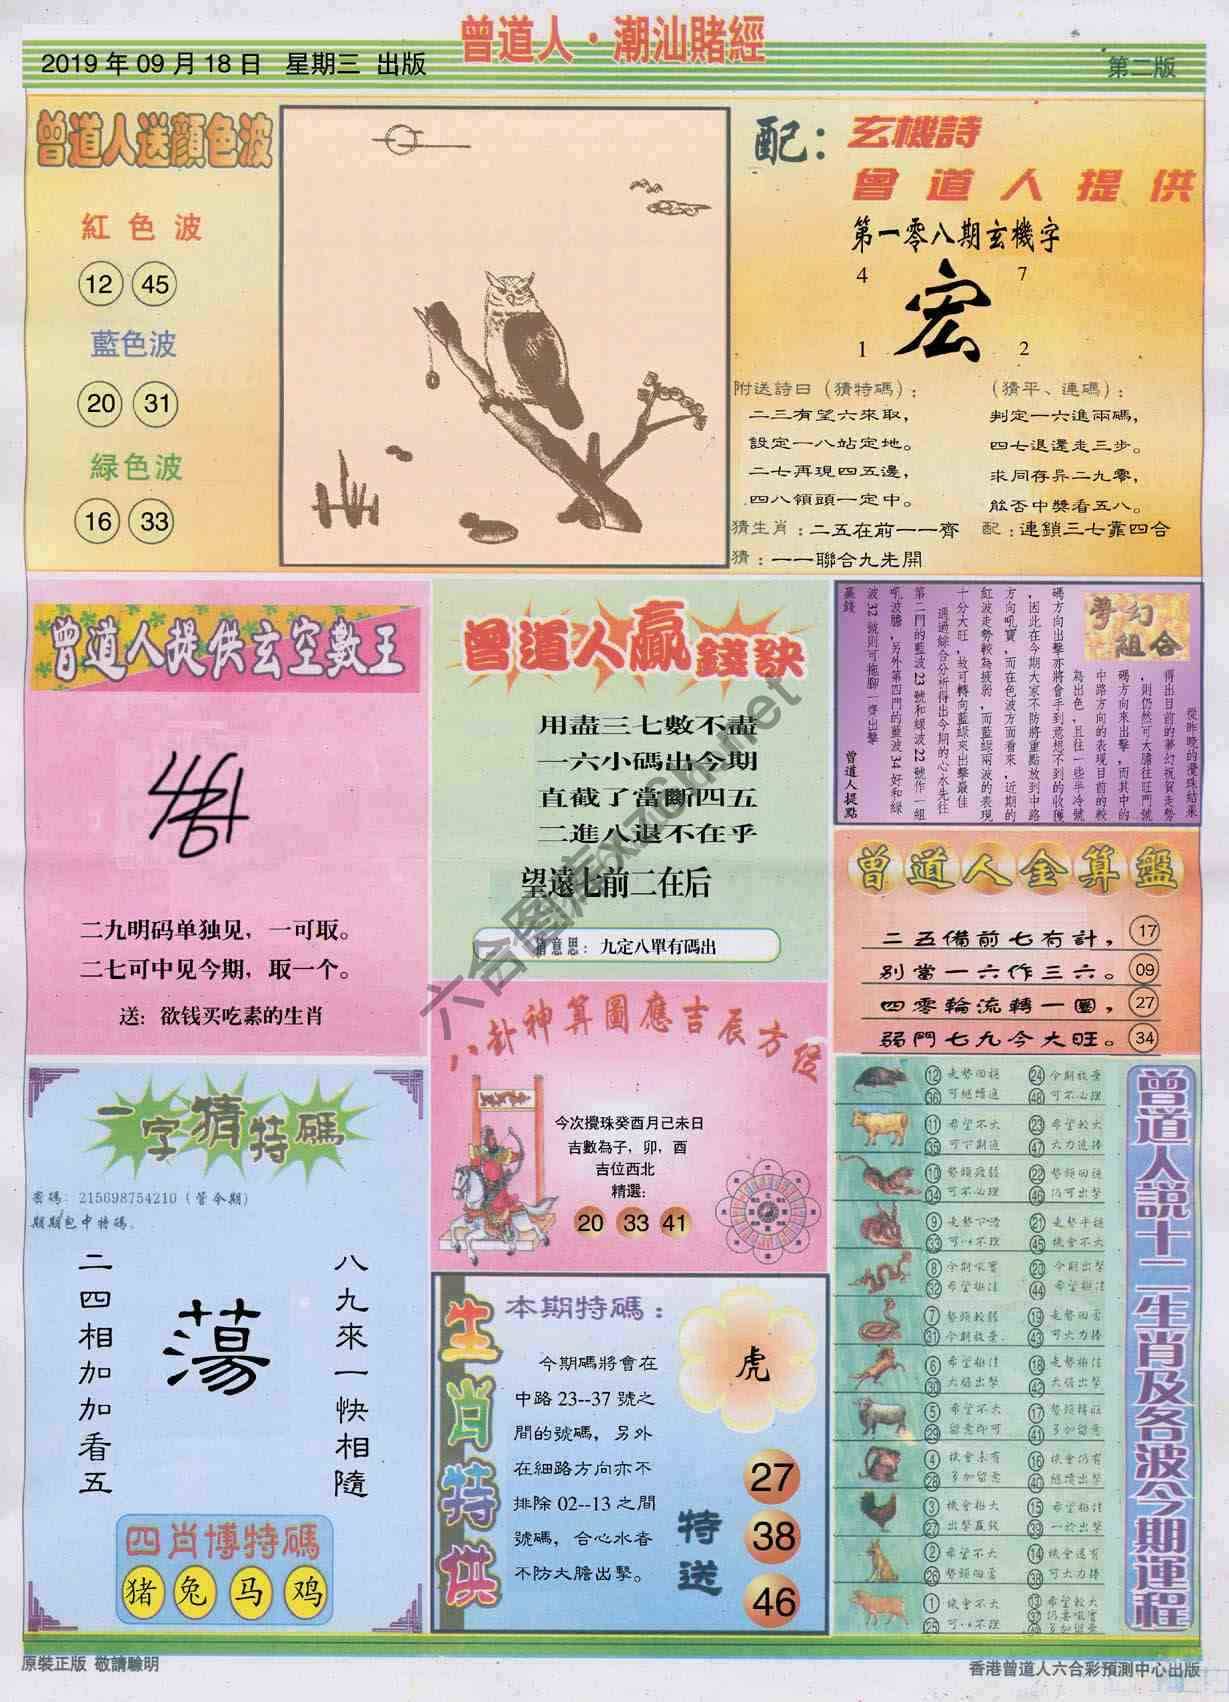 曾道人·潮汕賭經
2019 年 09 月 18 日 星期三 出版
第二版
曾道人送顏色波
紅色波
12 45
藍色波
20 31
緑色波
16 33
配：玄機詩
曾道人提供
第一零八期玄機字
4 7
宏
1 2
附送詩曰（猜特碼）：
二三有望六來取，
設定一八站定地。
二七再現四五邊，
四八領頭一定中。
（猜平、連碼）：
判定一六進兩碼，
四七退還走三步。
求同存异二九零，
能否中獎看五八。
猜生肖：二五在前一一齊
配：連鎖三七靠四合
猜：一一聯合九先開
曾道人提供玄空數王
二九明码单独见，一可取。
二七可中见今期，取一个。
送：欲钱买吃素的生肖
曾道人贏錢訣
用盡三七數不盡
一六小碼出今期
直截了當斷四五
二進八退不在乎
望遠七前二在后
猜意思：九定八單有碼出
夢幻組合
從昨晚的攪珠結果
得出目前的夢幻祝賀走勢
，則仍然可大膽往旺門號
碼方向來出擊，而其中的
中路方向的表現目前的較
為出色，且往一些半冷號
碼方向出擊亦將會手到意想不到的收穫
，因此在今期大家不防將重點放到中路
方向吼寶，而在色波方面看來，近期的
紅波走勢較為疲弱，而藍綠兩波的表現
十分大旺，故可轉向藍綠來出擊最佳
通過綜合分析得出今期的心水先往
第二門的藍波 23 號和綠波 22 號作一組
吼波膽，另外第四門的藍波 34 好和綠
波 32 號則可拖腳一齊出擊
贏錢
曾道人提點
曾道人金算盤
二五備前七有計， 17
別當一六作三六。 09
四零輪流轉一圈， 27
弱門七九今大旺。 34
八卦神算圖應吉辰方位
今次攪珠癸酉月己未日
吉數為子，卯，酉
吉位西北
精選：
20 33 41
一字猜特碼
密碼：215698754210（管令期）
期期包中特碼。
二四相加加看五
蕩
八九來一快相隨
四肖博特碼
猪 兔 马 鸡
生肖特供
本期特碼：
今期碼將會在
中路 23--37 號之
間的號碼，另外
在細路方向亦不
排除 02--13 之間
號碼，合心水者
不防大膽出擊。
虎
特送
27
38
46
曾道人説十二生肖及各波今期運程
12 走勢回穩 24 今期放棄
36 可繼續追 48 可不必理
11 希望不大 23 希望較大
35 可下期追 47 大力追捧
10 勢頭疲弱 22 勢頭回穩
34 可不必理 46 仍可出擊
9 走勢下滑 21 走勢平穩
33 可以不理 45 機會不大
8 今期吼實 20 今期出擊
32 希望極佳 44 希望極佳
7 勢頭較弱 19 走勢回雲
31 今期放棄 43 可大力捧
6 希望極佳 18 走勢極佳
30 大膽出擊 42 大膽出擊
5 希望不大 17 勢頭轉旺
29 留意即可 41 多加留意
4 機會未有 16 機會仍有
28 多加留意 40 繼續出擊
3 機會極大 15 希望極佳
27 出擊贏錢 39 一於出擊
2 希望不大 14 機會還有
26 勢頭回雲 38 可大力捧
1 機會不大 13 希望較大
25 可以不理 37 仍要吼實
49 多加留意
六合图库xxz6hn.net
原裝正版 敬請驗明
香港曾道人六合彩預測中心出版